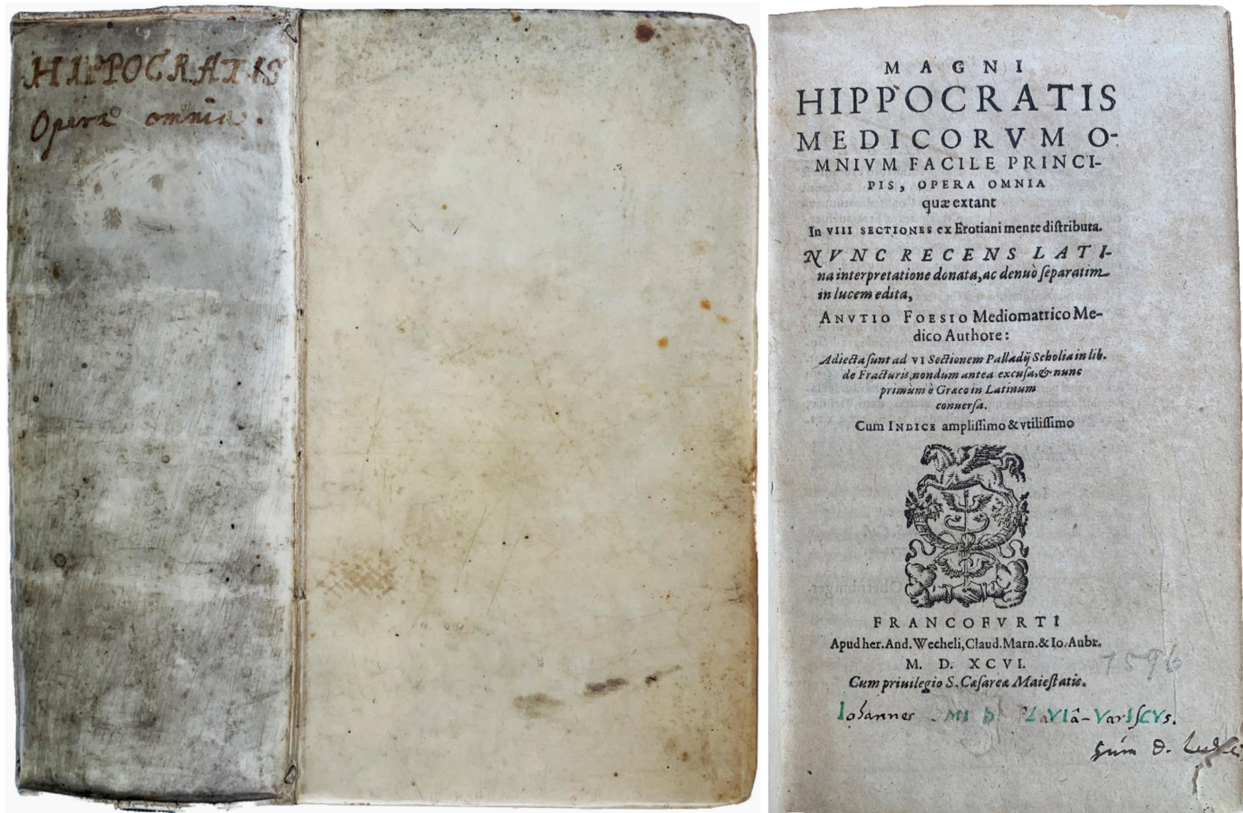 HIPPOCRATIS
Opera omnia.
MAGNI
HIPPOCRATIS
MEDICORVM O-
MNIVM FACILE PRINCI-
PIS, OPERA OMNIA
quæ extant
In VIII SECTIONES ex Erotiani mente distributa.
NVNC RECENS LATI-
na interpretatione donata, ac denuò separatim
in lucem edita,
ANVTIO FOESIO Mediomatrico Me-
dico Authore:
Adiecta sunt ad VI Sectionem Palladij Scholia in lib.
de Fracturis, nondum antea excusa, & nunc
primùm è Græco in Latinum
conuersa.
Cum INDICE amplissimo & vtilissimo
FRANCOFVRTI
Apud her. And. Wecheli, Claud. Marn. & Io. Aubr.
M. D. XCVI.
1596
Cum priuilegio S. Cæsareæ Maiestatis.
Iohannes VarISCVs.